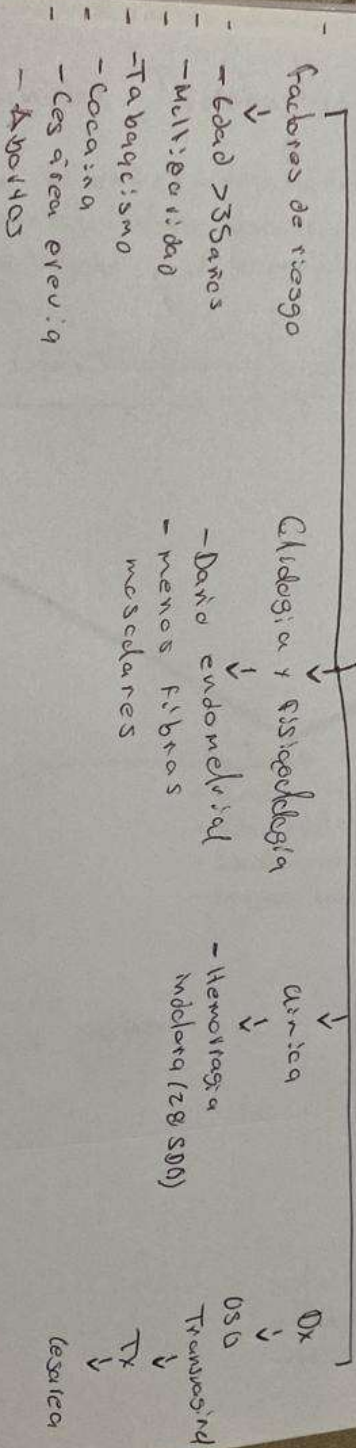 Factores de riesgo
- Edad >35 años
- Multiparidad
- Tabaquismo
- Cocaina
- Cesárea previa
- Abortos
Etiología y fisiopatología
- Daño endometrial
- menos fibras
musculares
Clínica
- Hemorragia
indolora (28 SDG)
Dx
USG
Transvaginal
Tx
Cesarea